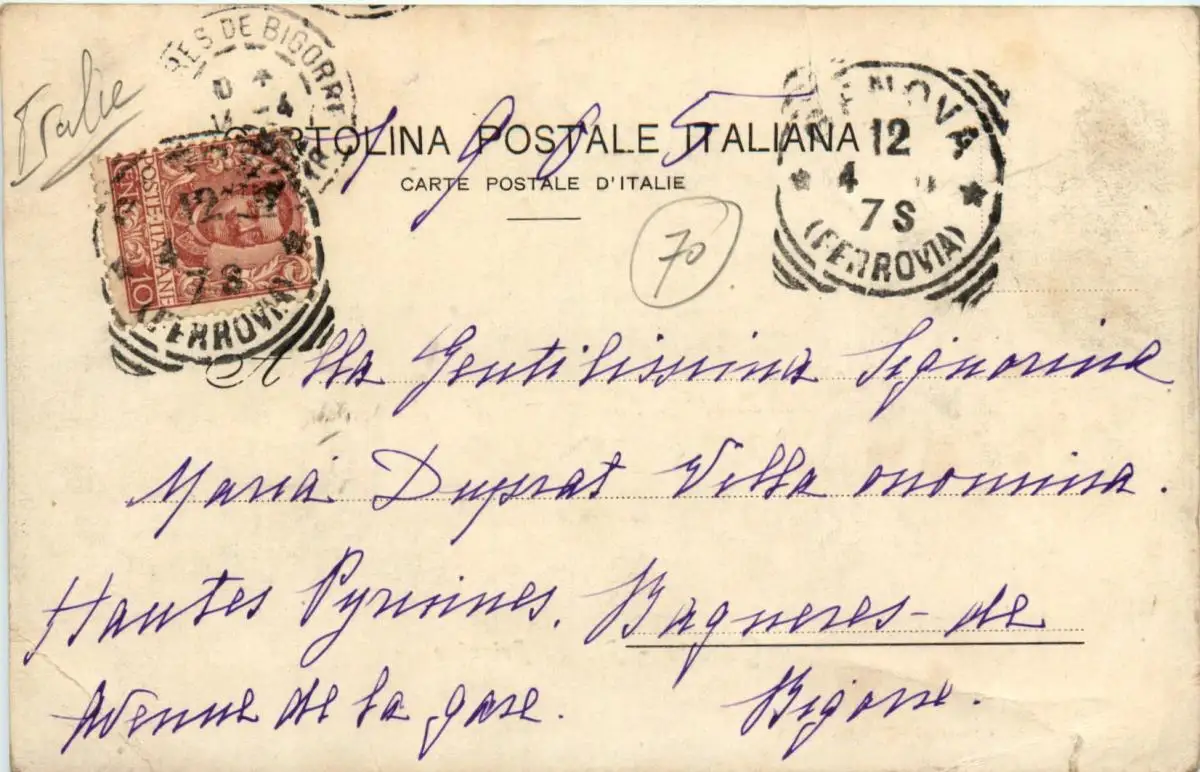 RES DE BIGORRE
Italie
CARTOLINA POSTALE ITALIANA
1905
CARTE POSTALE D'ITALIE
GENOVA
12
4
7 S
(FERROVIA)
POSTE ITALIANE
CENT. 10
12
4
7 S
(FERROVIA)
70
Alla Gentilissima Signorina
Maria Duprat Villa onomina.
Hautes Pyrinines. Bagneres-de
Avenue de la gare. Bigorre.